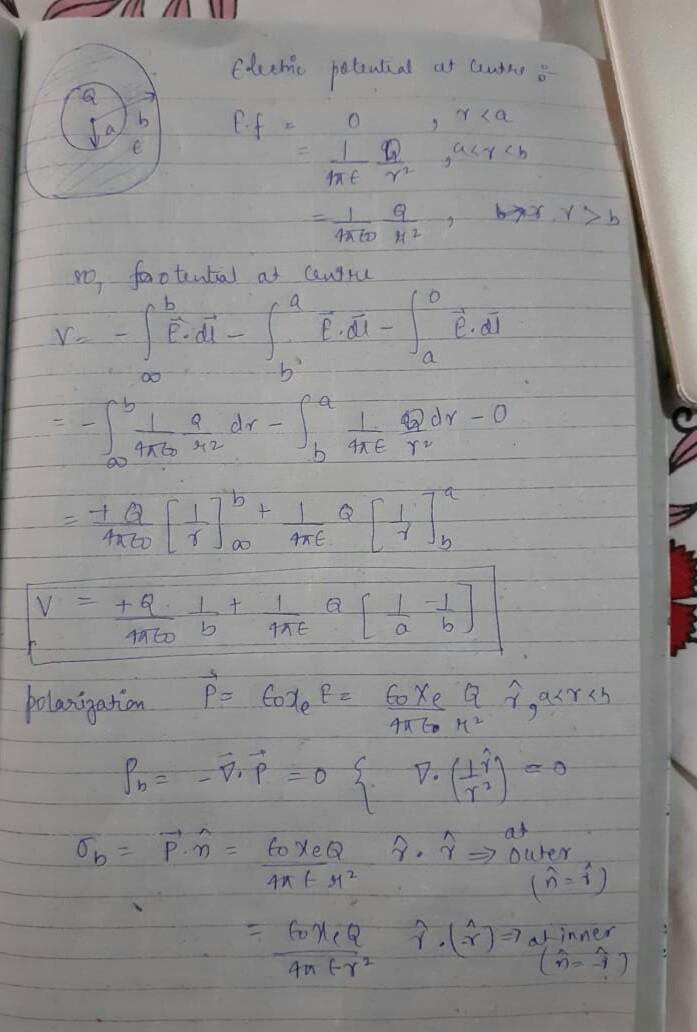 Q
a
b
ε
Electric potential at Centre :-
E.f = 0 , r < a
= 1/4πε Q/r² , a<r<b
= 1/4πε0 Q/r² , r > b
so, potential at centre
V = - ∫_∞^b E⃗.dl⃗ - ∫_b^a E⃗.dl⃗ - ∫_a^0 E⃗.dl⃗
= - ∫_∞^b 1/4πε0 Q/r² dr - ∫_b^a 1/4πε Q/r² dr - 0
= +Q/4πε0 [1/r]_∞^b + 1/4πε Q [1/r]_b^a
V = +Q/4πε0 1/b + 1/4πε Q [1/a - 1/b]
polarization P⃗ = ε0χe E = ε0χe Q/4πε0 r² r̂, a<r<b
ρb = -∇⃗.P⃗ = 0 { ∇.(1/r² r̂) = 0
σb = P⃗.n̂ = ε0χeQ/4πε r² r̂.r̂ ⇒ at outer (n̂ = r̂)
= ε0χeQ/4πε r² r̂.(r̂) ⇒ at inner (n̂ = -r̂)